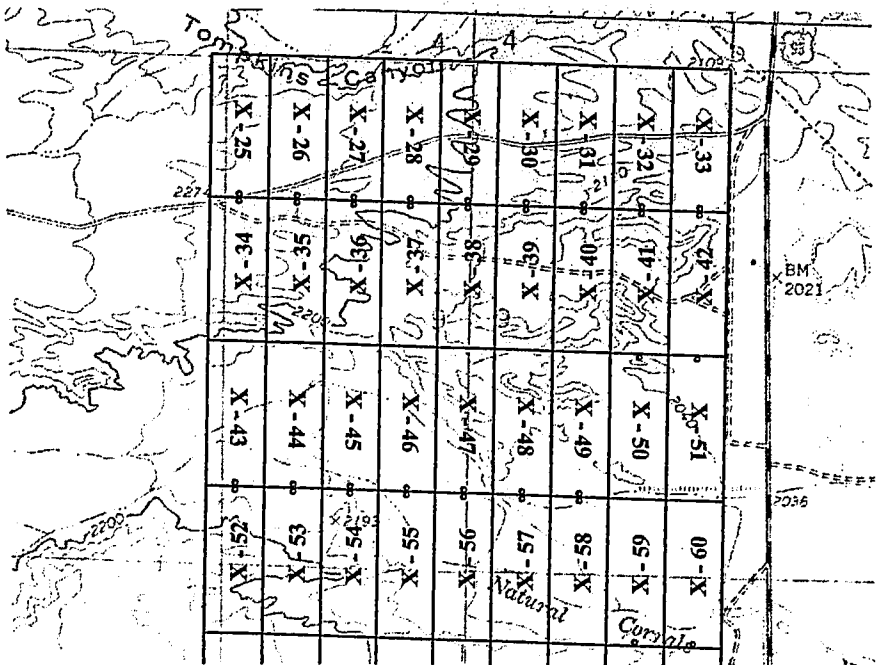 Tompkins Canyon
4 4
2109
X-25 X-26 X-27 X-28 X-29 X-30 X-31 X-32 X-33
2274
X-34 X-35 X-36 X-37 X-38 X-39 X-40 X-41 X-42
BM
2021
2200
X-43 X-44 X-45 X-46 X-47 X-48 X-49 X-50 X-51
2036
2200
×2193
X-52 X-53 X-54 X-55 X-56 X-57 X-58 X-59 X-60
Natural Corrals